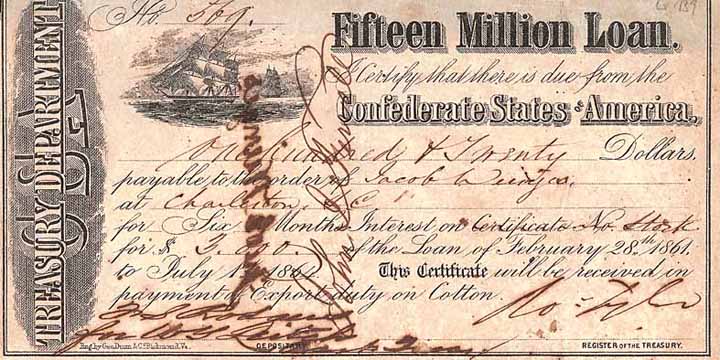 No. 369.
Fifteen Million Loan.
I Certify that there is due from the
Confederate States of America,
One hundred & Twenty Dollars.
payable to the order of Jacob
at Charleston S C
for Six Months Interest on Certificate No. Stock
for $ 3.000 of the Loan of February 28th 1861.
to July 1st 186 This Certificate will be received in
payment of Export duty on Cotton.
TREASURY DEPARTMENT
CSA
Eng. by Geo. Dunn & Co. Richmond, Va.
DEPOSITARY
Ro. Tyler
REGISTER OF THE TREASURY.